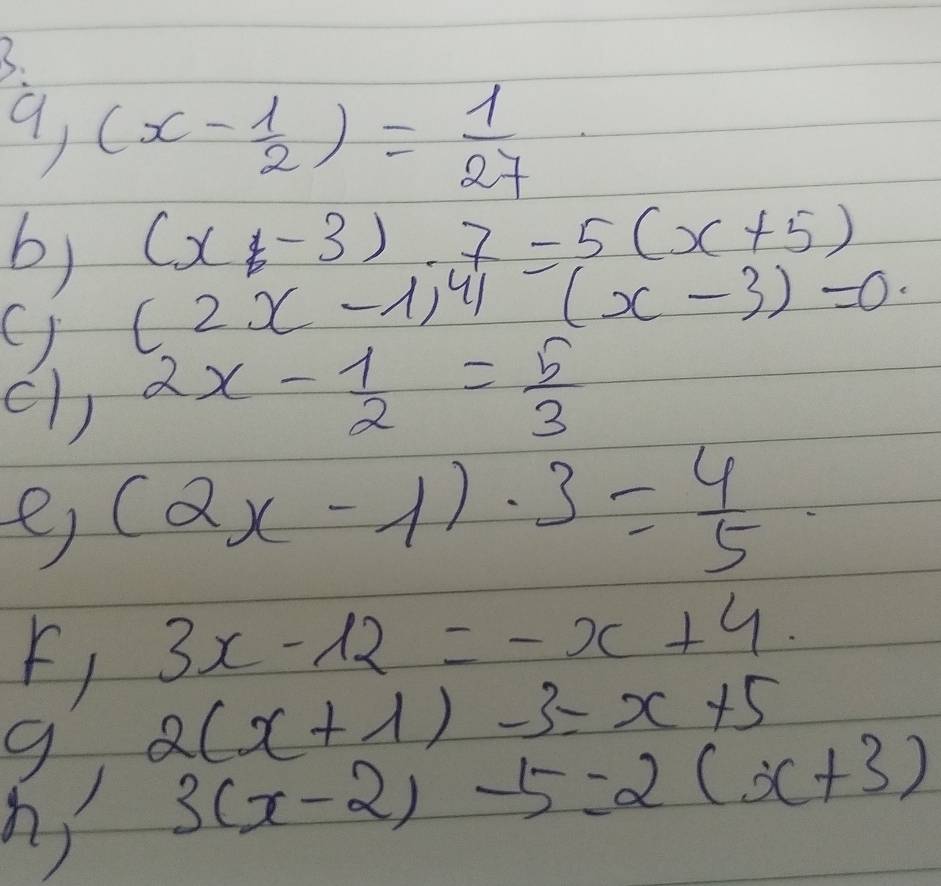 3.
a, (x - 1/2) = 1/27
b) (x - 3) . 7 = 5(x + 5)
c) (2x - 1)^4 (x - 3) = 0.
d), 2x - 1/2 = 5/3
e, (2x - 1) . 3 = 4/5 .
F, 3x - 12 = - x + 4.
g, 2(x + 1) - 3 = x + 5
h, 3(x - 2) - 5 = 2 (x + 3)